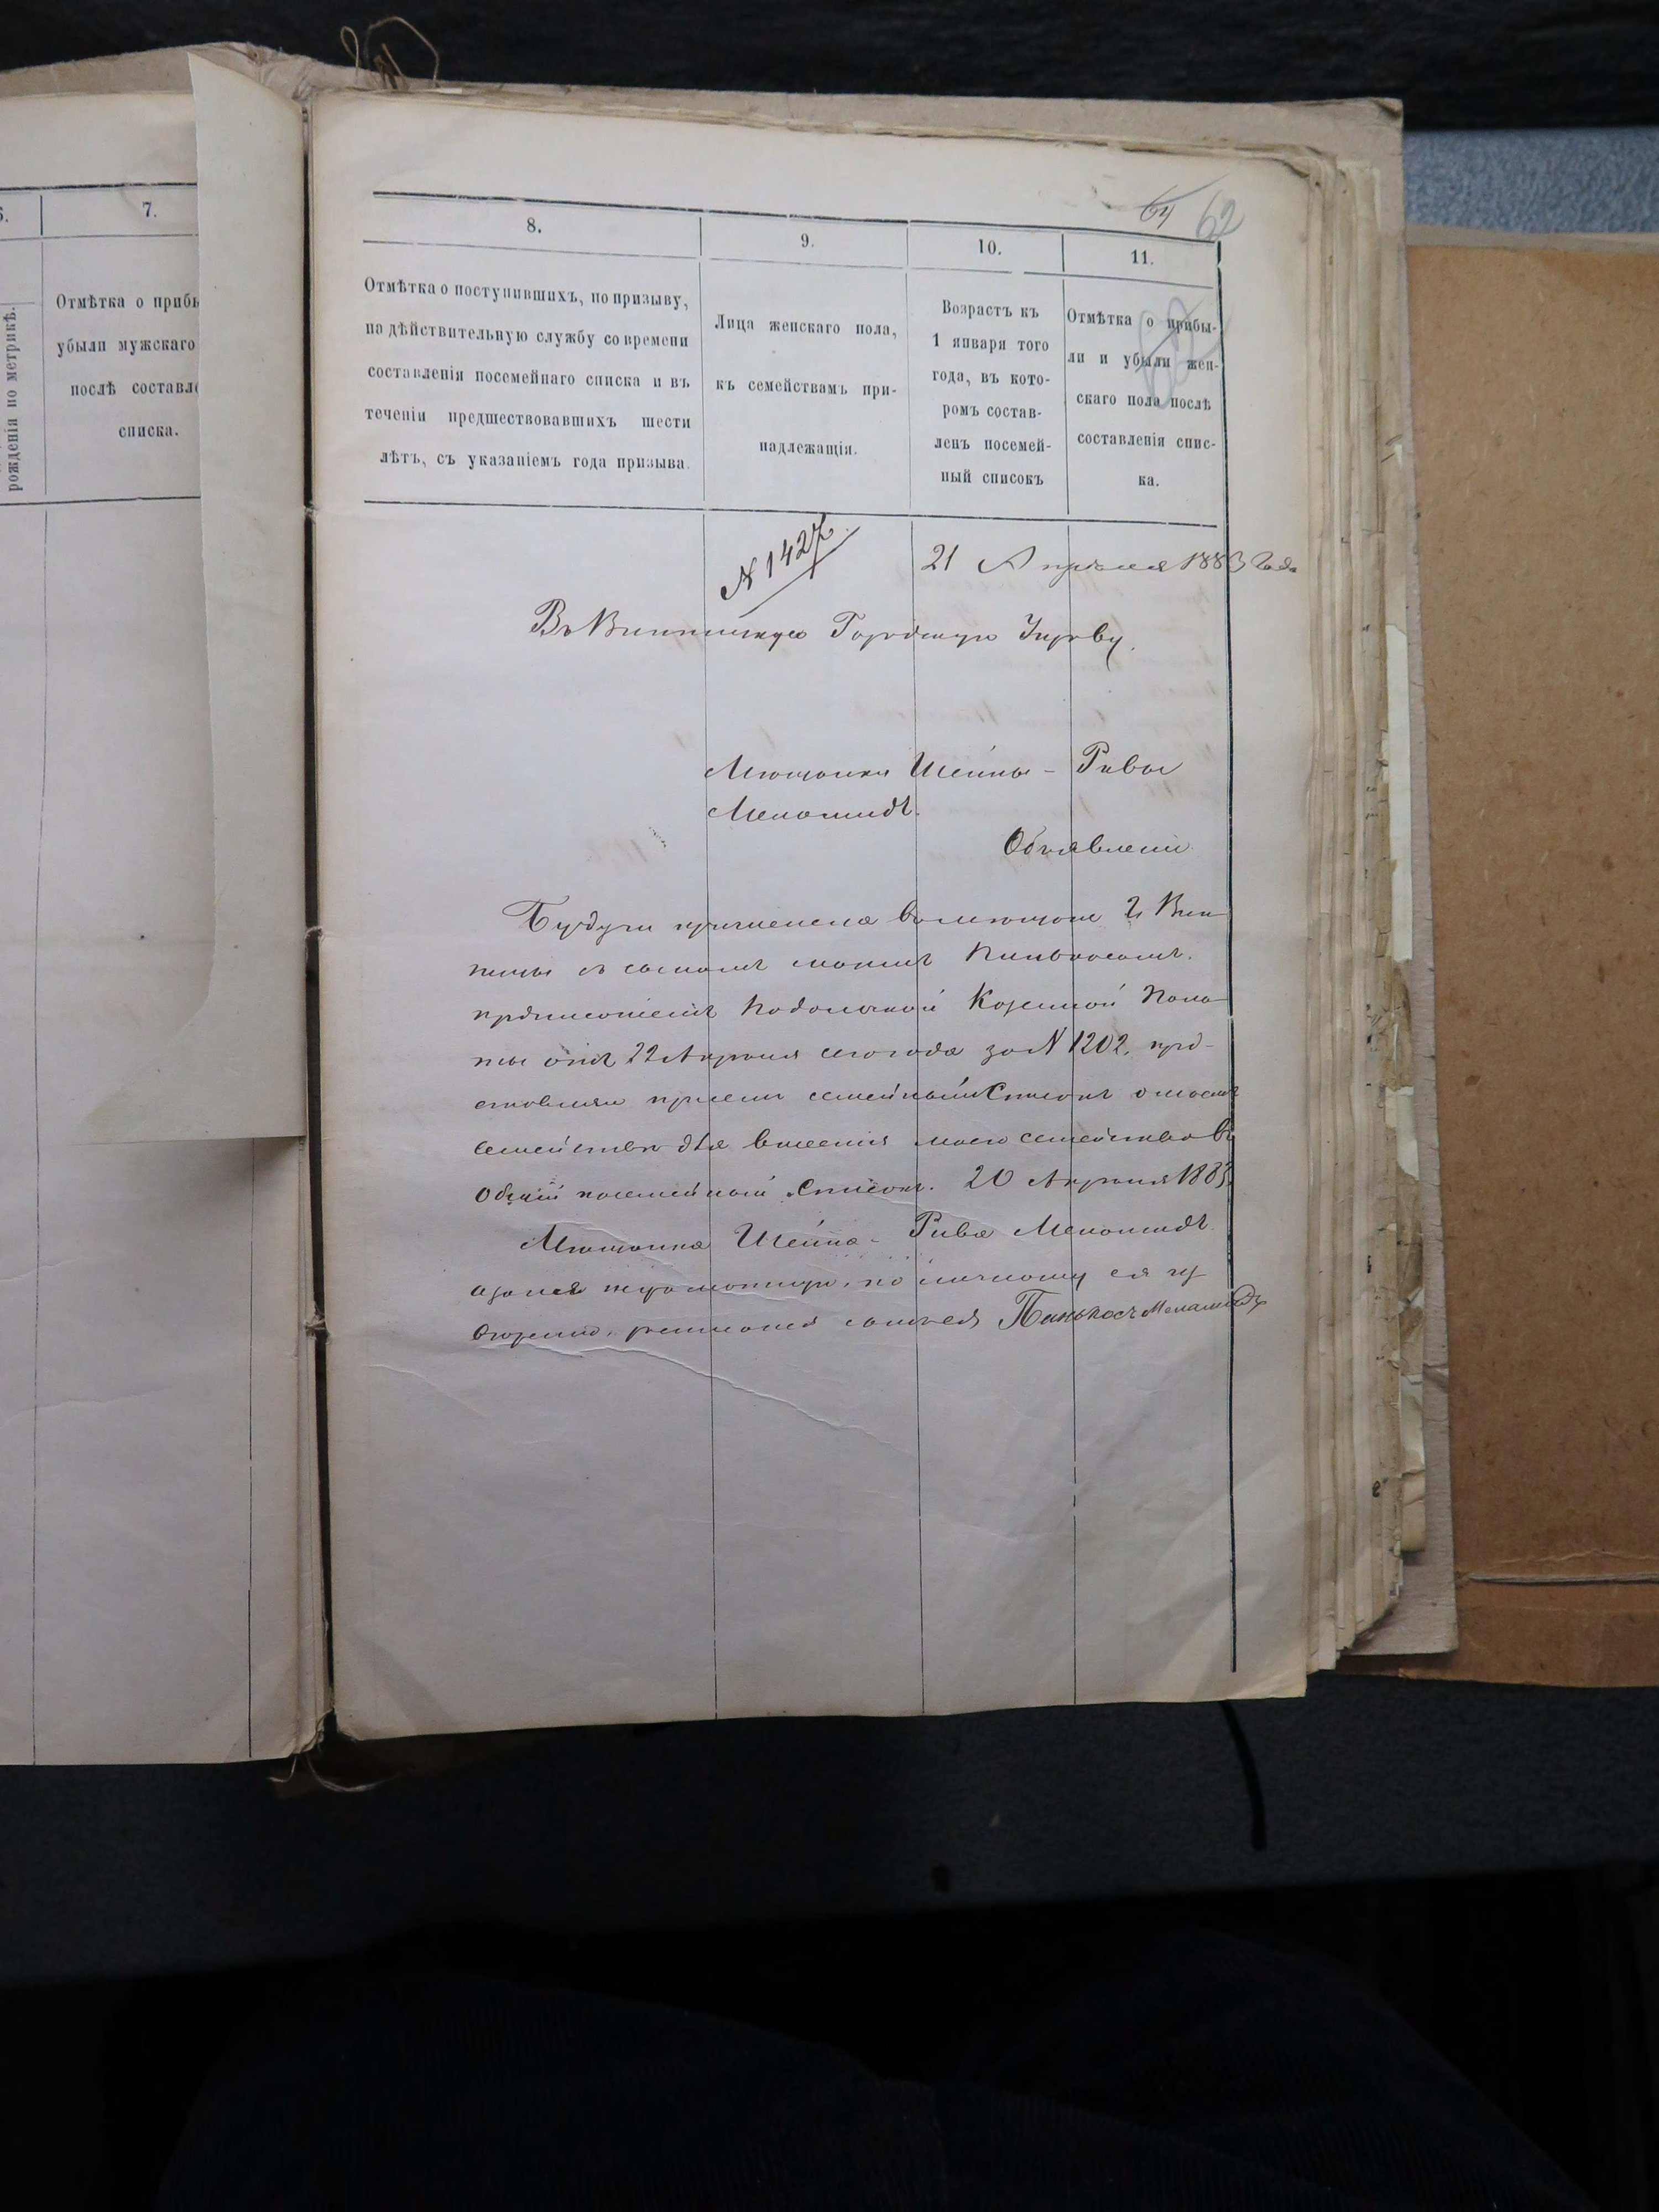 6.
7.
рожденія по метрикѣ.
Отмѣтка о прибы
убыли мужскаго
послѣ составле
списка.
64 62
8.
9.
10.
11.
Отмѣтка о поступившихъ, по призыву,
на дѣйствительную службу со времени
составленія посемейнаго списка и въ
теченіи предшествовавшихъ шести
лѣтъ, съ указаніемъ года призыва.
Лица женскаго пола,
къ семействамъ при-
надлежащія.
Возрастъ къ
1 января того
года, въ кото-
ромъ состав-
ленъ посемей-
ный списокъ
Отмѣтка о прибы-
ли и убыли жен-
скаго пола послѣ
составленія спис-
ка.
N 1427
21 Апрѣля 1883 Года
Въ Винницкую Городскую Управу.
Мѣщанки Шейны - Ривы
Меношидъ.
Объявленіе
Будучи причислена въ мѣщане г. Вин-
ницы съ сыномъ моимъ Пинькосомъ.
предписаніемъ Подольской Казенной Пала-
ты отъ 22 Апрѣля сего года за N 1202. пред-
ставляю при семъ семейный Списокъ о моемъ
семействѣ для внесенія моего семейства въ
общій посемейный Списокъ. 20 Апрѣля 1883
Мѣщанка Шейна - Рива Меношидъ
а за нея неграмотную, по личному ея
росписался сынъ ея Пинькосъ Менашидъ